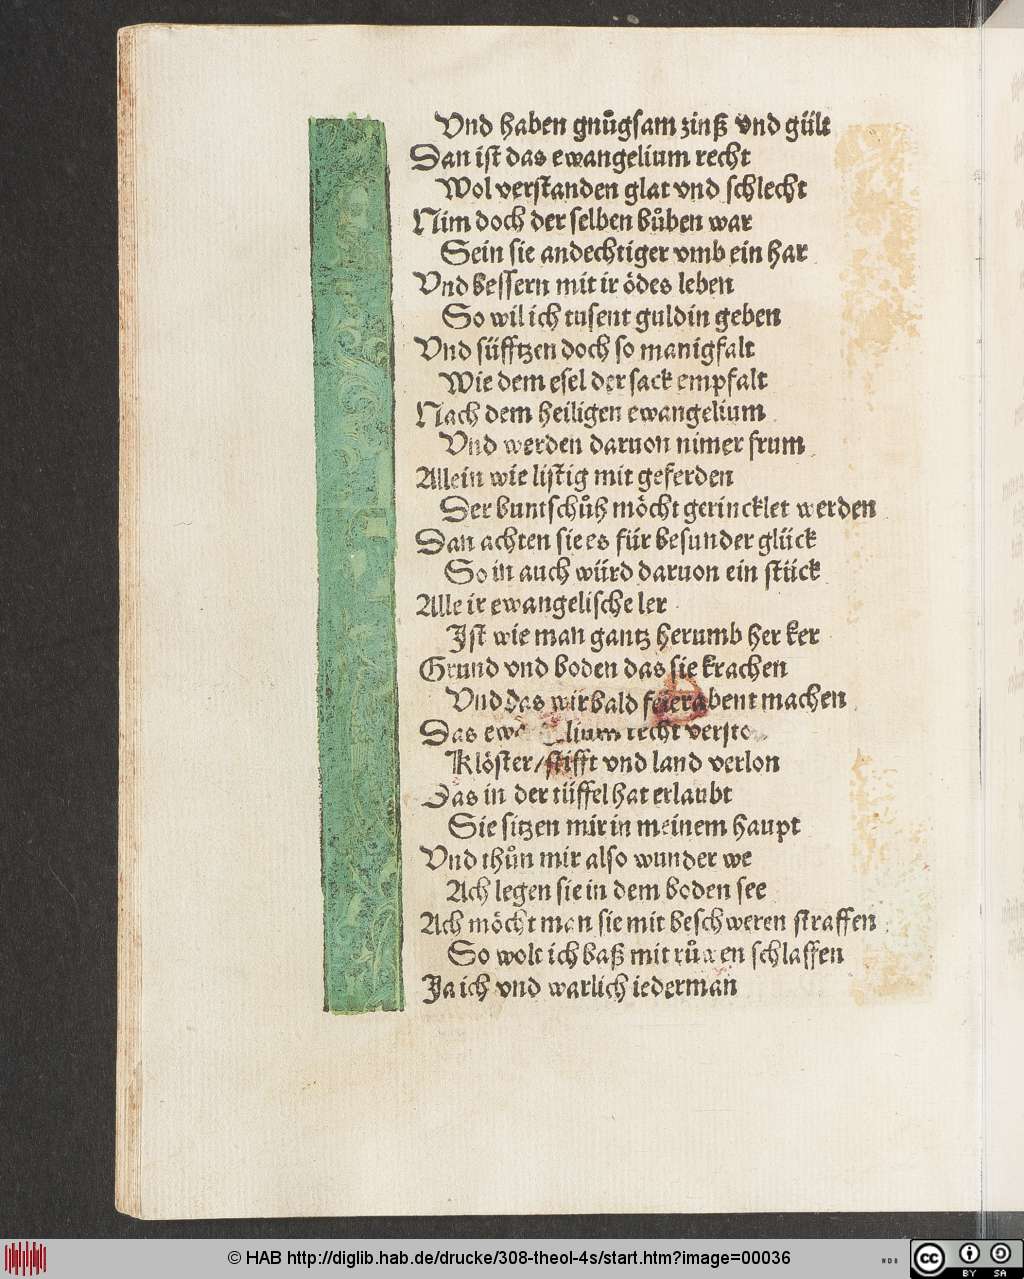 Vnd haben gnůgsam zinß vnd gült
Dan ist das ewangelium recht
Wol verstanden glat vnd schlecht
Nim doch der selben bůben war
Sein sie andechtiger vmb ein har
Vnd bessern mit ir ödes leben
So wil ich tusent guldin geben
Vnd süfftzen doch so manigfalt
Wie dem esel der sack empfalt
Nach dem heiligen ewangelium
Vnd werden daruon nimer frum
Allein wie listig mit geferden
Der buntschůh möcht gerincklet werden
Dan achten sie es für besunder glück
So in auch würd daruon ein stück
Alle ir ewangelische ler
Ist wie man gantz herumb her ker
Grund vnd boden das sie krachen
Vnd das wir bald feierabent machen
Das recht
Klöster/stifft vnd land verlon
Das in der tüffel hat erlaubt
Sie sitzen mir in meinem haupt
Vnd thůn mir also wunder we
Ach legen sie in dem boden see
Ach möcht man sie mit beschweren straffen
So wolt ich baß mit růwen schlaffen
Ja ich vnd warlich iederman
© HAB http://diglib.hab.de/drucke/308-theol-4s/start.htm?image=00036
WDB
cc BY SA